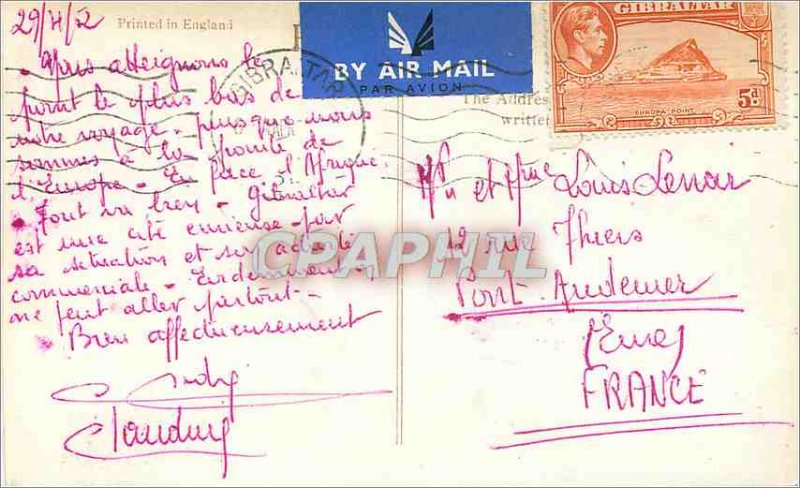 29/4/52
Printed in England
BY AIR MAIL
PAR AVION
GIBRALTAR
GIBRALTAR
EUROPA POINT
5d
The Address
writte
Nous atteignons le
point le plus bas de
notre voyage, puisque nous
sommes à la pointe de
l'Europe - En face l'Afrique.
Tout va bien - Gibraltar
est une cité curieuse par
sa situation et son activité
commerciale - Evidemment
ne peut aller partout -
Bien affectueusement
Claudine
Mr et Mme Louis Lenoir
rue Thiers
Pont-Audemer
(Eure)
FRANCE
CPAPHIL